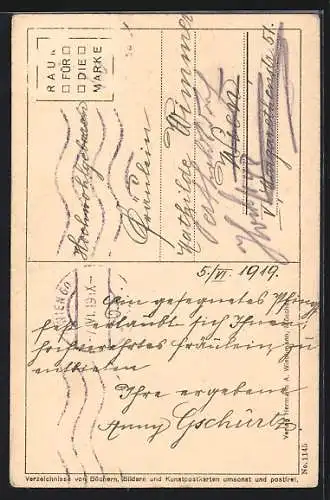 RAUM
FÜR
DIE
MARKE
Hochwohlgeboren
Fräulein
Mathilde Wimmer
Wien
V. Margarethenstr. 51.
5./VI. 1919.
Ein gesegnetes Pfingst
fest erlaubt sich Ihnen
hochverehrtes Fräulein zu
entbieten
Ihre ergebene
Anny Gschürtz
Verlag Hermann A. Wiechmann, München
No. 1145
Verzeichnisse von Büchern, Bildern und Kunstpostkarten umsonst und postfrei.